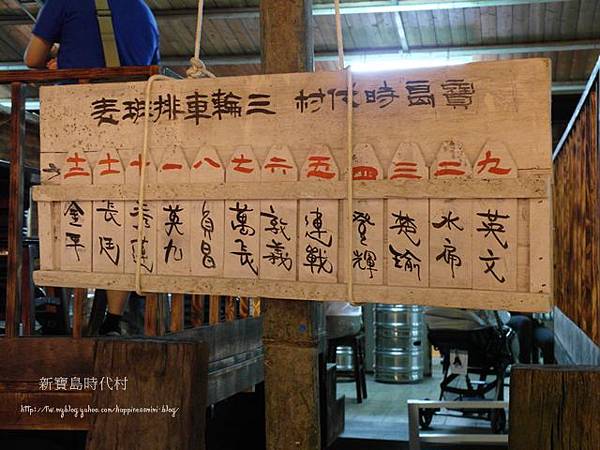 寶島時代村 三輪車排班表
九 二 三 四 五 六 七 八 一 十 十一 十二
英文 水扁 楚瑜 登輝 連戰 敦義 萬長 貞昌 英九 秀蓮 長廷 金平
新寶島時代村
http://tw.myblog.yahoo.com/happinessmini-blog/